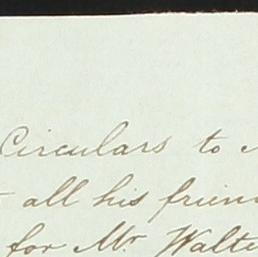 Circulars to
all his frien
for Mr Walte